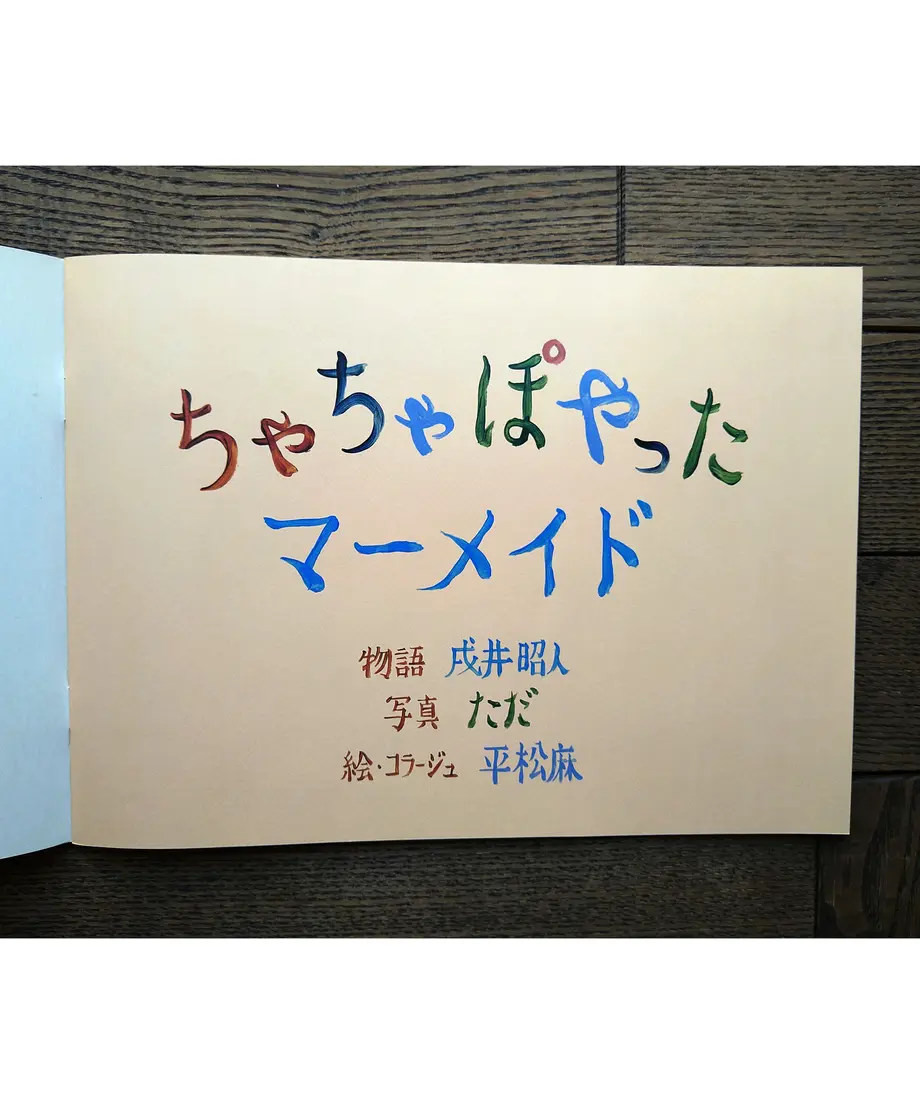 ちゃちゃぽやった
マーメイド
物語 戌井昭人
写真 ただ
絵・コラージュ 平松麻